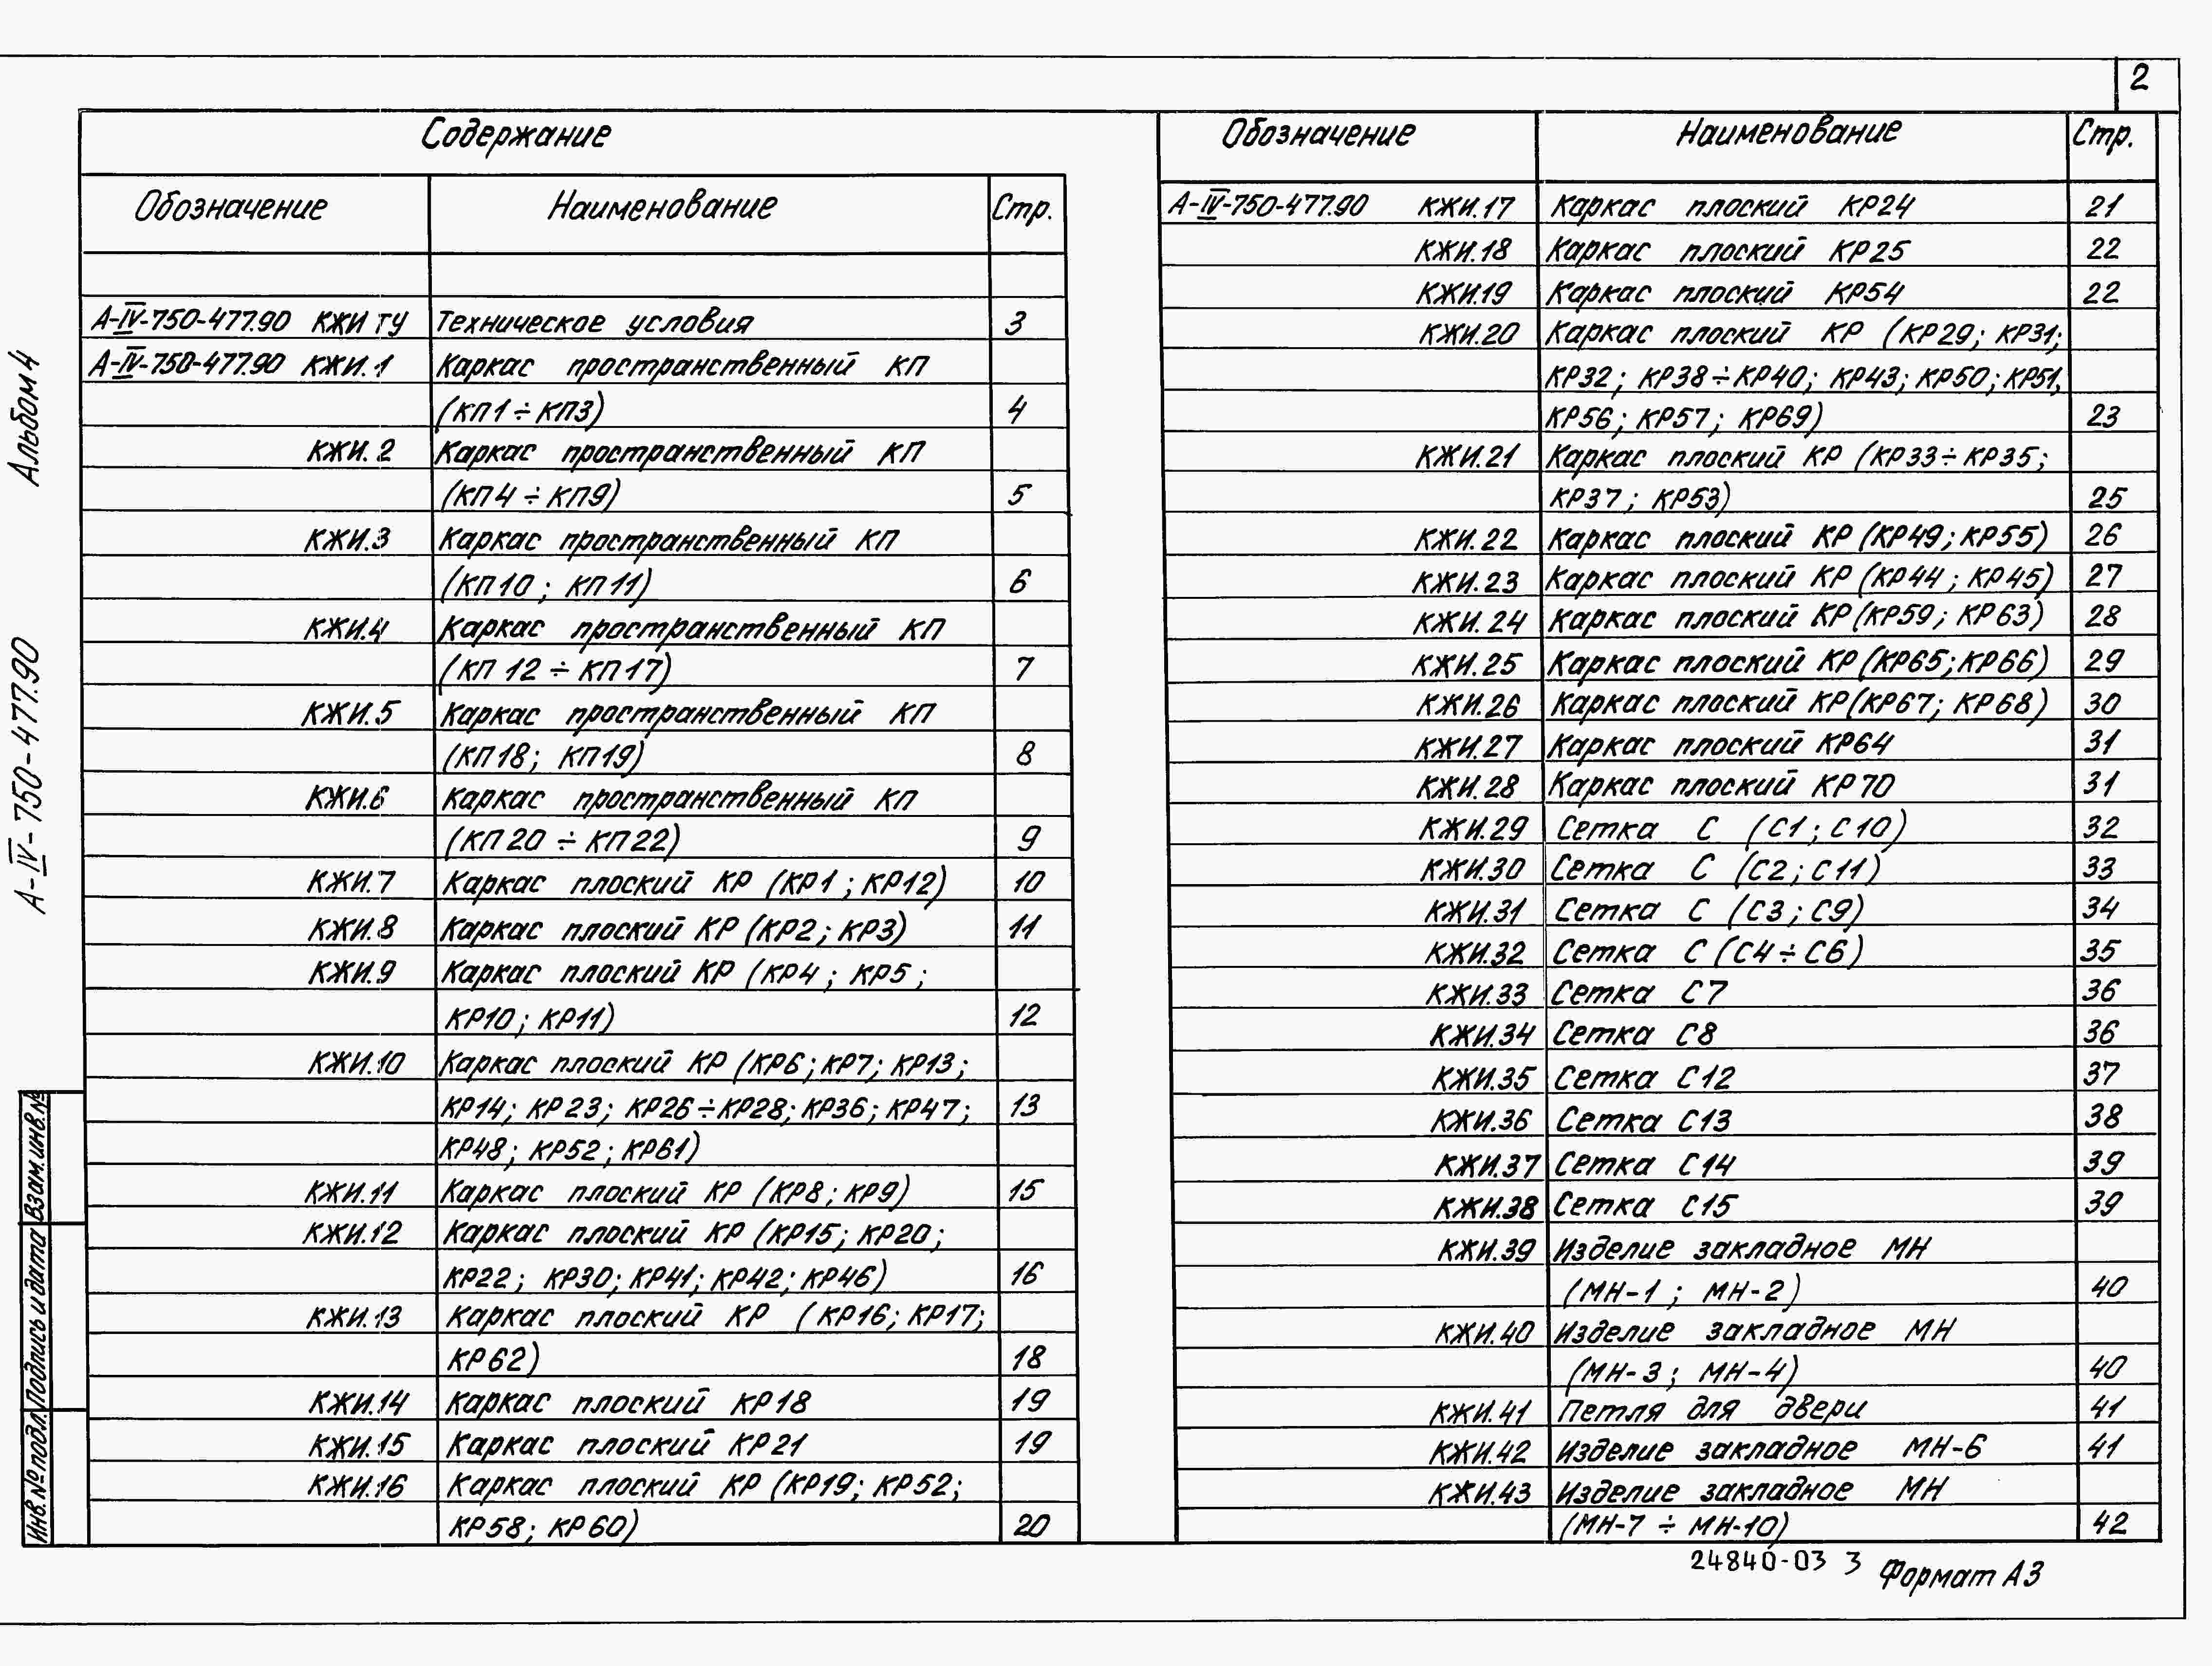 2
Содержание
Обозначение Наименование Стр.
А-IV-750-477.90 КЖИ ТУ Техническое условия 3
А-IV-750-477.90 КЖИ.1 Каркас пространственный КП
(КП1÷КП3) 4
КЖИ.2 Каркас пространственный КП
(КП4÷КП9) 5
КЖИ.3 Каркас пространственный КП
(КП10; КП11) 6
КЖИ.4 Каркас пространственный КП
(КП12÷КП17) 7
КЖИ.5 Каркас пространственный КП
(КП18; КП19) 8
КЖИ.6 Каркас пространственный КП
(КП20÷КП22) 9
КЖИ.7 Каркас плоский КР (КР1; КР12) 10
КЖИ.8 Каркас плоский КР (КР2; КР3) 11
КЖИ.9 Каркас плоский КР (КР4; КР5;
КР10; КР11) 12
КЖИ.10 Каркас плоский КР (КР6; КР7; КР13;
КР14; КР23; КР26÷КР28; КР36; КР47; 13
КР48; КР52; КР61)
КЖИ.11 Каркас плоский КР (КР8; КР9) 15
КЖИ.12 Каркас плоский КР (КР15; КР20;
КР22; КР30; КР41; КР42; КР46) 16
КЖИ.13 Каркас плоский КР (КР16; КР17;
КР62) 18
КЖИ.14 Каркас плоский КР18 19
КЖИ.15 Каркас плоский КР21 19
КЖИ.16 Каркас плоский КР (КР19; КР52;
КР58; КР60) 20
Обозначение Наименование Стр.
А-IV-750-477.90 КЖИ.17 Каркас плоский КР24 21
КЖИ.18 Каркас плоский КР25 22
КЖИ.19 Каркас плоский КР54 22
КЖИ.20 Каркас плоский КР (КР29; КР31;
КР32; КР38÷КР40; КР43; КР50; КР51,
КР56; КР57; КР69) 23
КЖИ.21 Каркас плоский КР (КР33÷КР35;
КР37; КР53) 25
КЖИ.22 Каркас плоский КР (КР49; КР55) 26
КЖИ.23 Каркас плоский КР (КР44; КР45) 27
КЖИ.24 Каркас плоский КР (КР59; КР63) 28
КЖИ.25 Каркас плоский КР (КР65; КР66) 29
КЖИ.26 Каркас плоский КР (КР67; КР68) 30
КЖИ.27 Каркас плоский КР64 31
КЖИ.28 Каркас плоский КР70 31
КЖИ.29 Сетка С (С1; С10) 32
КЖИ.30 Сетка С (С2; С11) 33
КЖИ.31 Сетка С (С3; С9) 34
КЖИ.32 Сетка С (С4÷С6) 35
КЖИ.33 Сетка С7 36
КЖИ.34 Сетка С8 36
КЖИ.35 Сетка С12 37
КЖИ.36 Сетка С13 38
КЖИ.37 Сетка С14 39
КЖИ.38 Сетка С15 39
КЖИ.39 Изделие закладное МН
(МН-1; МН-2) 40
КЖИ.40 Изделие закладное МН
(МН-3; МН-4) 40
КЖИ.41 Петля для двери 41
КЖИ.42 Изделие закладное МН-6 41
КЖИ.43 Изделие закладное МН
(МН-7÷МН-10) 42
24840-03 3 Формат А3
Альбом 4
А-IV-750-477.90
Взам.инв.№
Подпись и дата
Инв.№подл.